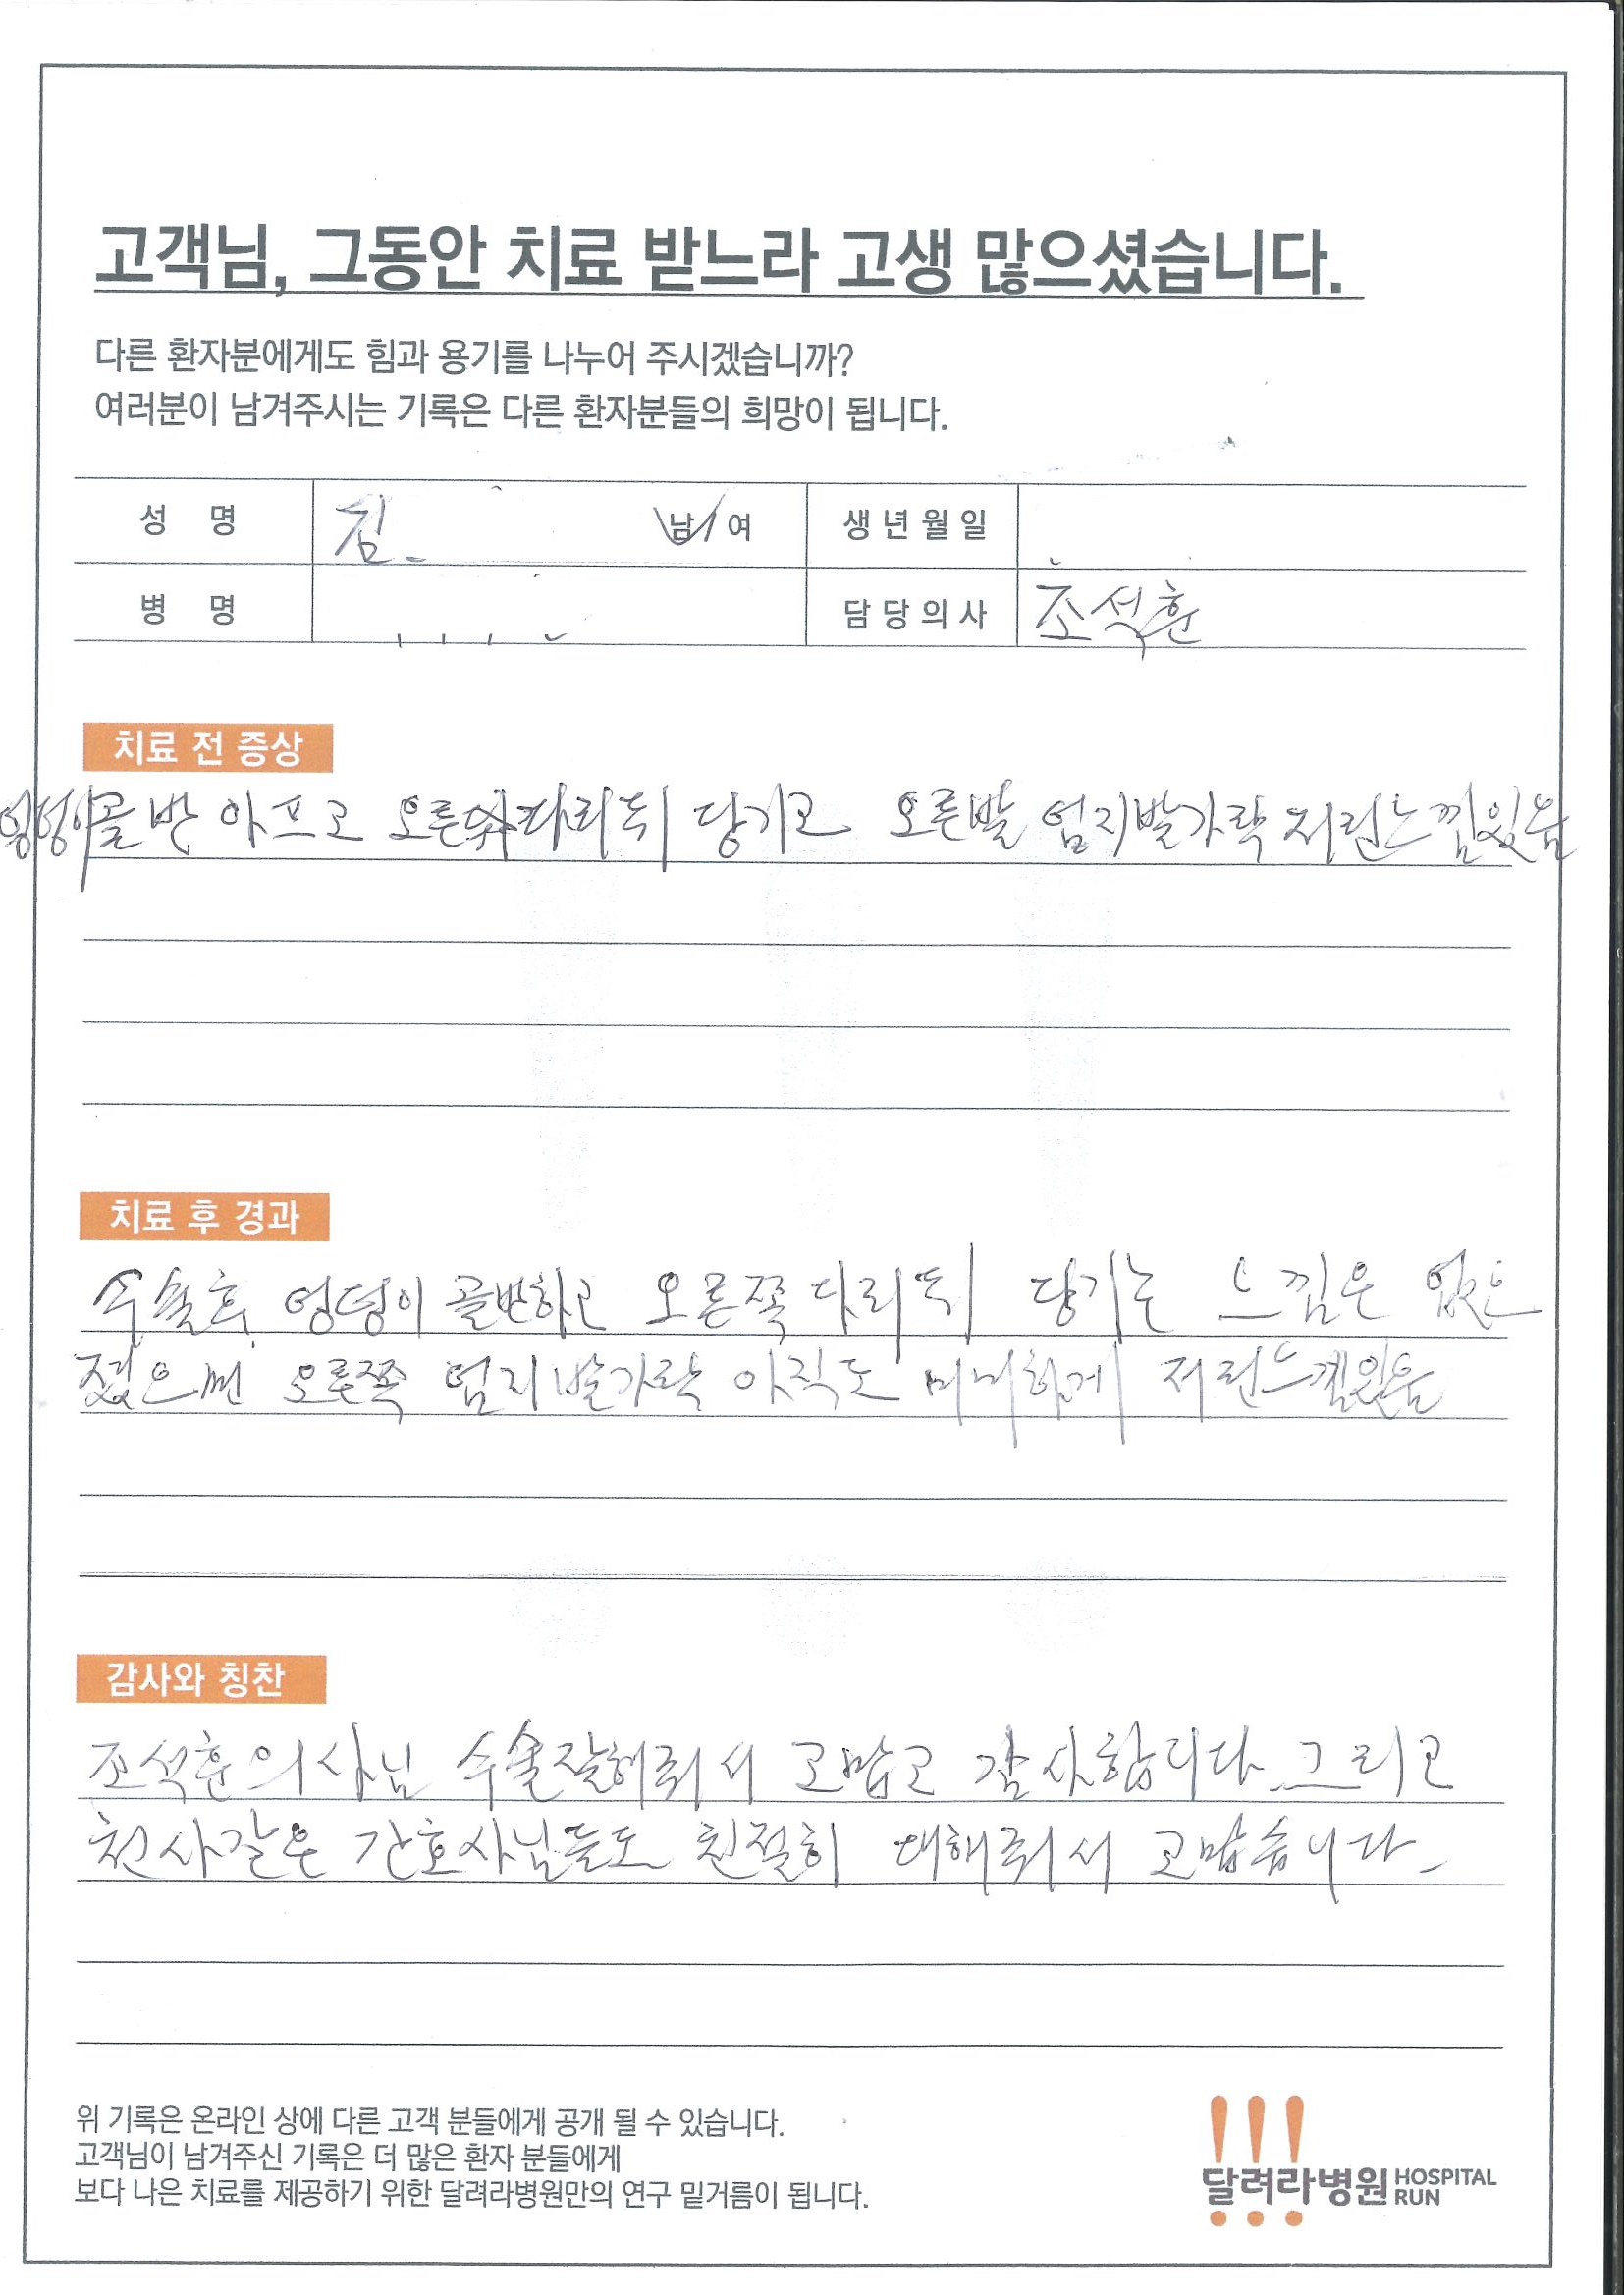 고객님, 그동안 치료 받느라 고생 많으셨습니다.
다른 환자분에게도 힘과 용기를 나누어 주시겠습니까?
여러분이 남겨주시는 기록은 다른 환자분들의 희망이 됩니다.
성 명 김 남/여 생년월일
병 명 담당의사 조석훈
치료 전 증상
엉덩이골반 아프고 오른쪽다리뒤 당기고 오른발 엄지발가락 저린느낌있음
치료 후 경과
수술후 엉덩이 골반하고 오른쪽 다리뒤 당기는 느낌은 없으
졌으며 오른쪽 엄지발가락 아직도 미미하게 저린느낌있음
감사와 칭찬
조석훈의사님 수술잘해줘서 고맙고 감사합니다 그리고
천사같은 간호사님들도 친절히 대해줘서 고맙습니다
위 기록은 온라인 상에 다른 고객 분들에게 공개 될 수 있습니다.
고객님이 남겨주신 기록은 더 많은 환자 분들에게
보다 나은 치료를 제공하기 위한 달려라병원만의 연구 밑거름이 됩니다.
달려라병원 HOSPITAL RUN